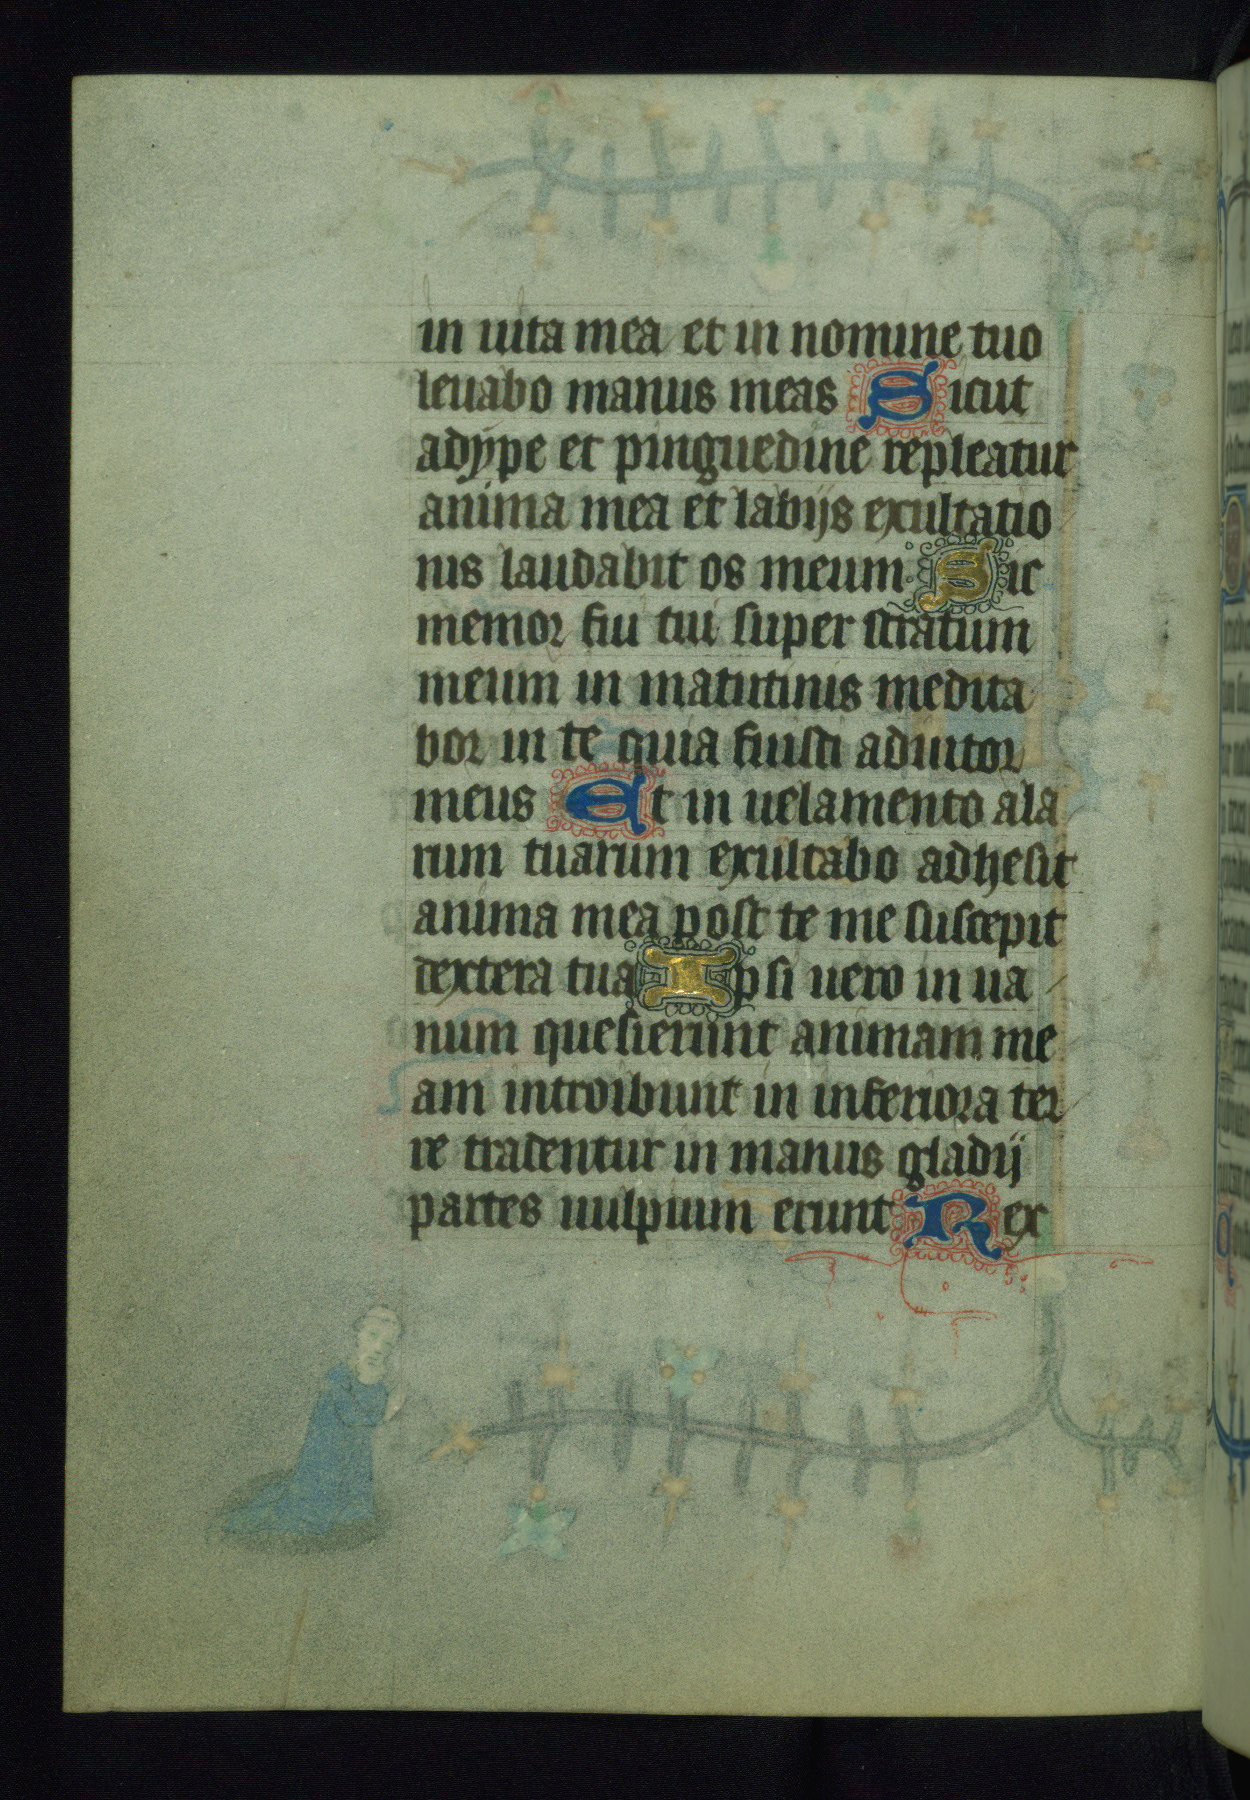 in uita mea et in nomine tuo
leuabo manus meas Sicut
adype et pinguedine repleatur
anima mea et labijs exultatio
nis laudabit os meum Sic
memor fiu tui super stratum
meum in matutinis medita
bor in te quia fuisti adiutor
meus Et in uelamento ala
rum tuarum exultabo adhesit
anima mea post te me suscepit
dextera tua Ipsi uero in ua
num quesierunt animam me
am introibunt in inferiora ter
re tradentur in manus gladij
partes uulpium erunt Rex